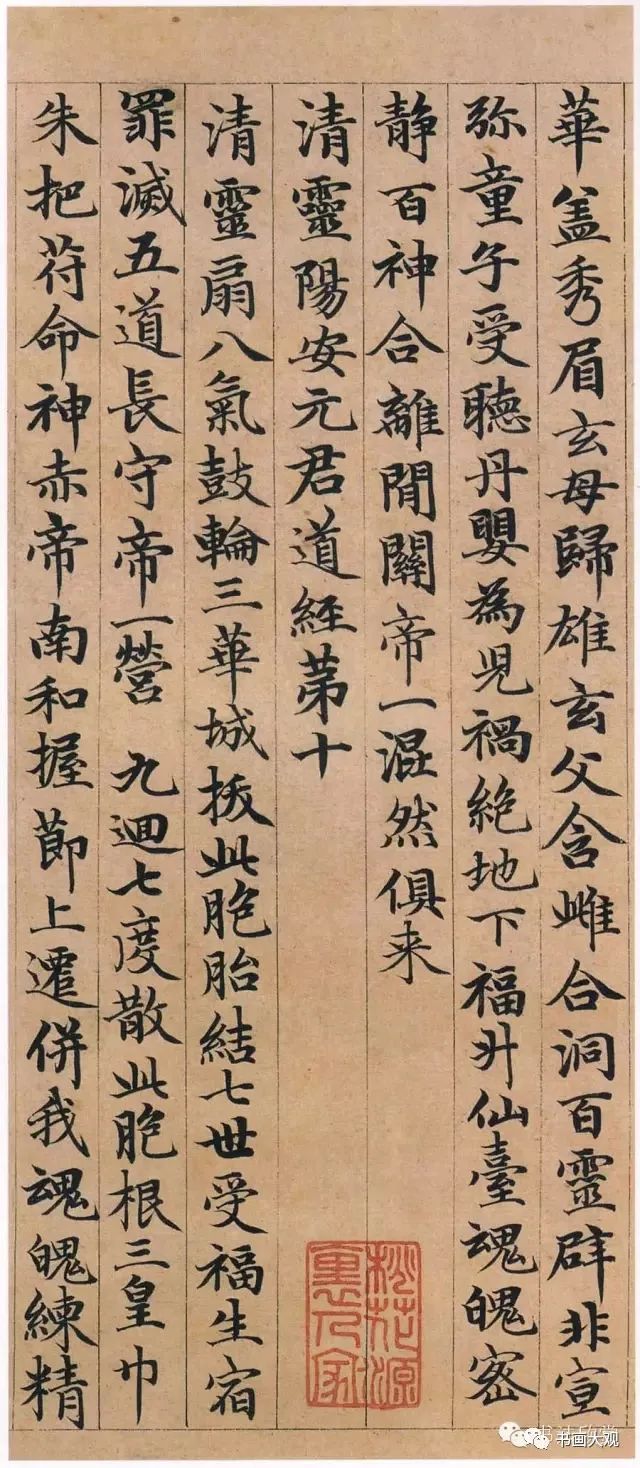 華盖秀眉玄母歸雄玄父含雌合洞百靈辟非宣
弥童子受聴丹嬰為児禍絶地下福升仙臺魂魄密
静百神合離開關帝一混然俱来
清靈陽安元君道經苐十
清靈扇八氣鼓輪三華城拔此胞胎結七世受福生宿
罪滅五道長守帝一營 九迴七度散此胞根三皇巾
朱把苻命神赤帝南和握莭上遷併我魂魄練精
桃花源
重人家
书画大观